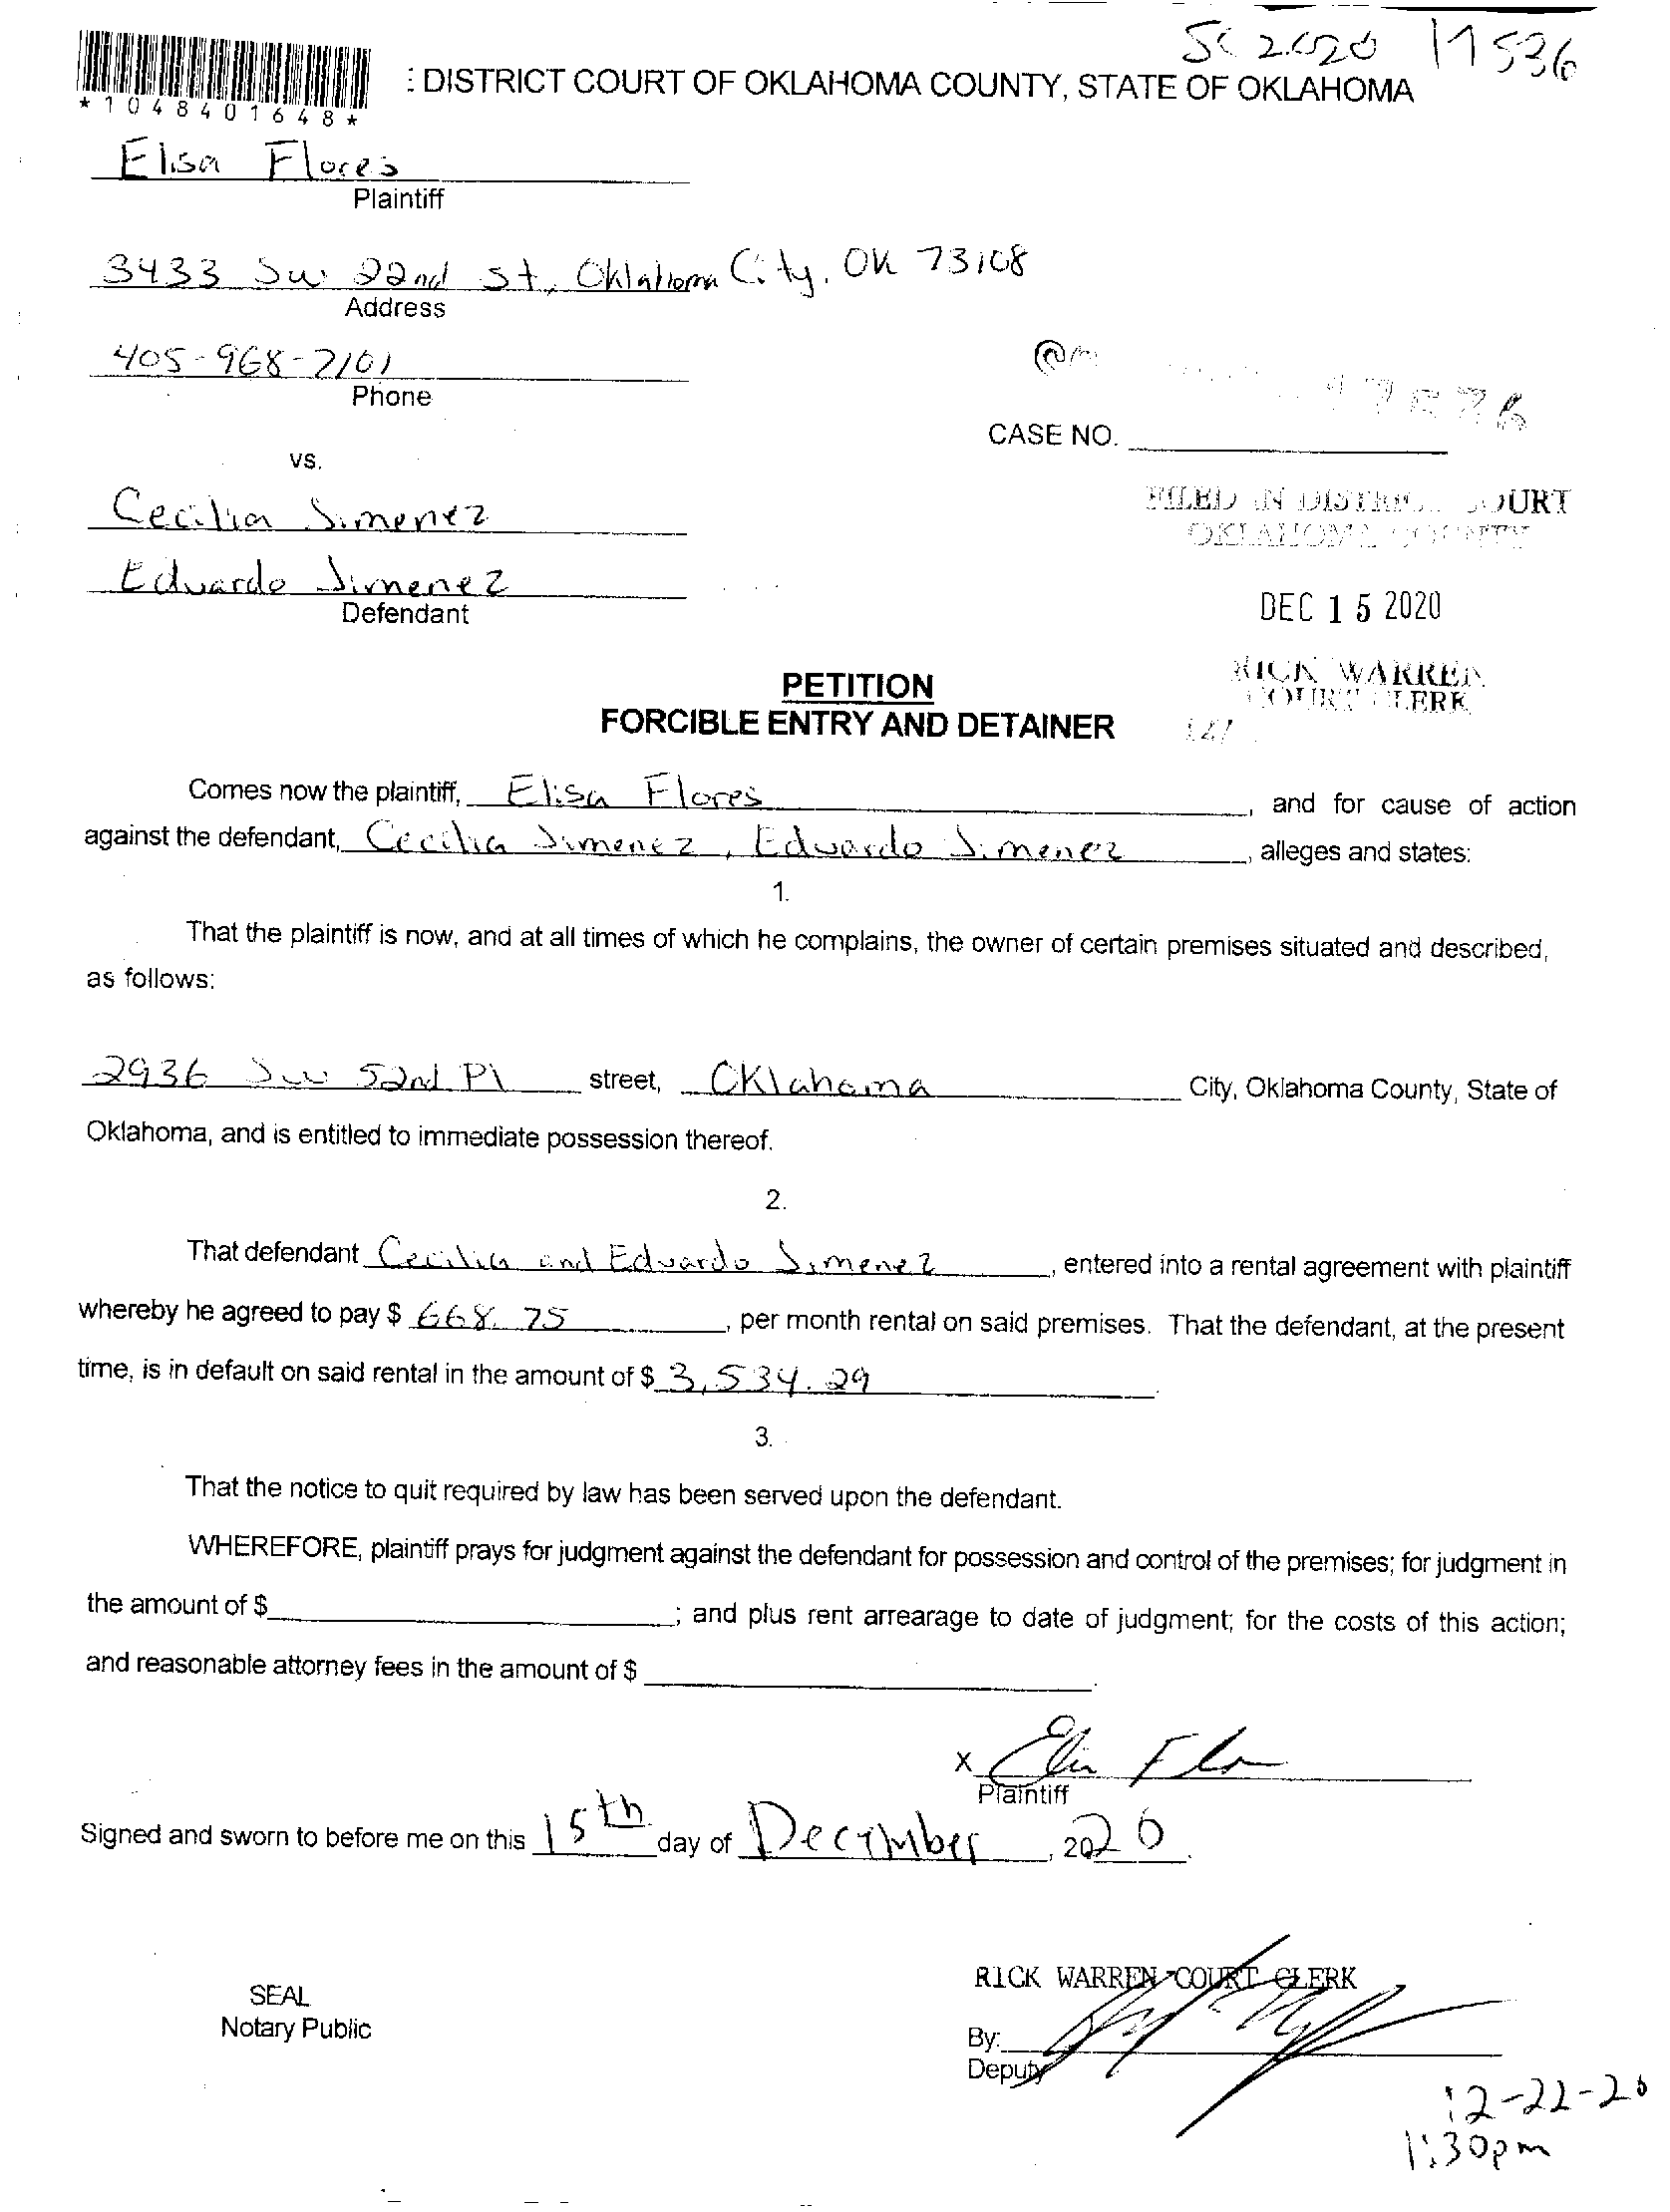 SC 2020 17536
*1048401648*
: DISTRICT COURT OF OKLAHOMA COUNTY, STATE OF OKLAHOMA
Elisa Flores
Plaintiff
3433 SW 22nd St, Oklahoma City, OK 73108
Address
405-968-7101
Phone
CASE NO.
vs.
Cecilia Jimenez
Eduardo Jimenez
Defendant
FILED IN DISTRICT COURT
OKLAHOMA COUNTY
DEC 15 2020
RICK WARREN
COURT CLERK
PETITION
FORCIBLE ENTRY AND DETAINER
Comes now the plaintiff, Elisa Flores, and for cause of action
against the defendant, Cecilia Jimenez, Eduardo Jimenez, alleges and states:
1.
That the plaintiff is now, and at all times of which he complains, the owner of certain premises situated and described,
as follows:
2936 SW 52nd Pl street, Oklahoma City, Oklahoma County, State of
Oklahoma, and is entitled to immediate possession thereof.
2.
That defendant Cecilia and Eduardo Jimenez, entered into a rental agreement with plaintiff
whereby he agreed to pay $ 668.75, per month rental on said premises. That the defendant, at the present
time, is in default on said rental in the amount of $ 3,534.29.
3.
That the notice to quit required by law has been served upon the defendant.
WHEREFORE, plaintiff prays for judgment against the defendant for possession and control of the premises; for judgment in
the amount of $ ; and plus rent arrearage to date of judgment; for the costs of this action;
and reasonable attorney fees in the amount of $ .
X Elisa Flo
Plaintiff
Signed and sworn to before me on this 15th day of December, 2020.
SEAL
Notary Public
RICK WARREN COURT CLERK
By:
Deputy
12-22-20
1:30pm